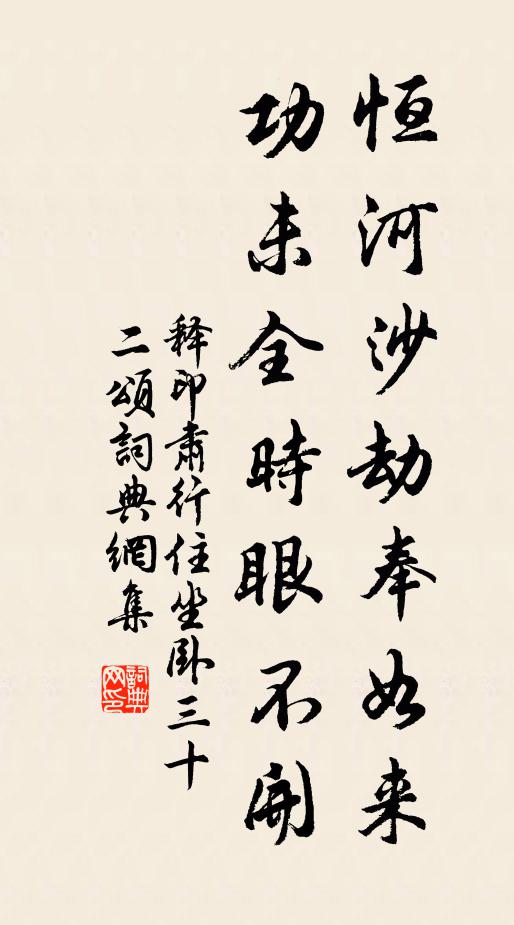 恒河沙劫奉如来
功未全時眼不開
释印肅行住坐卧三十
二頌詞典網集
詞典
网印